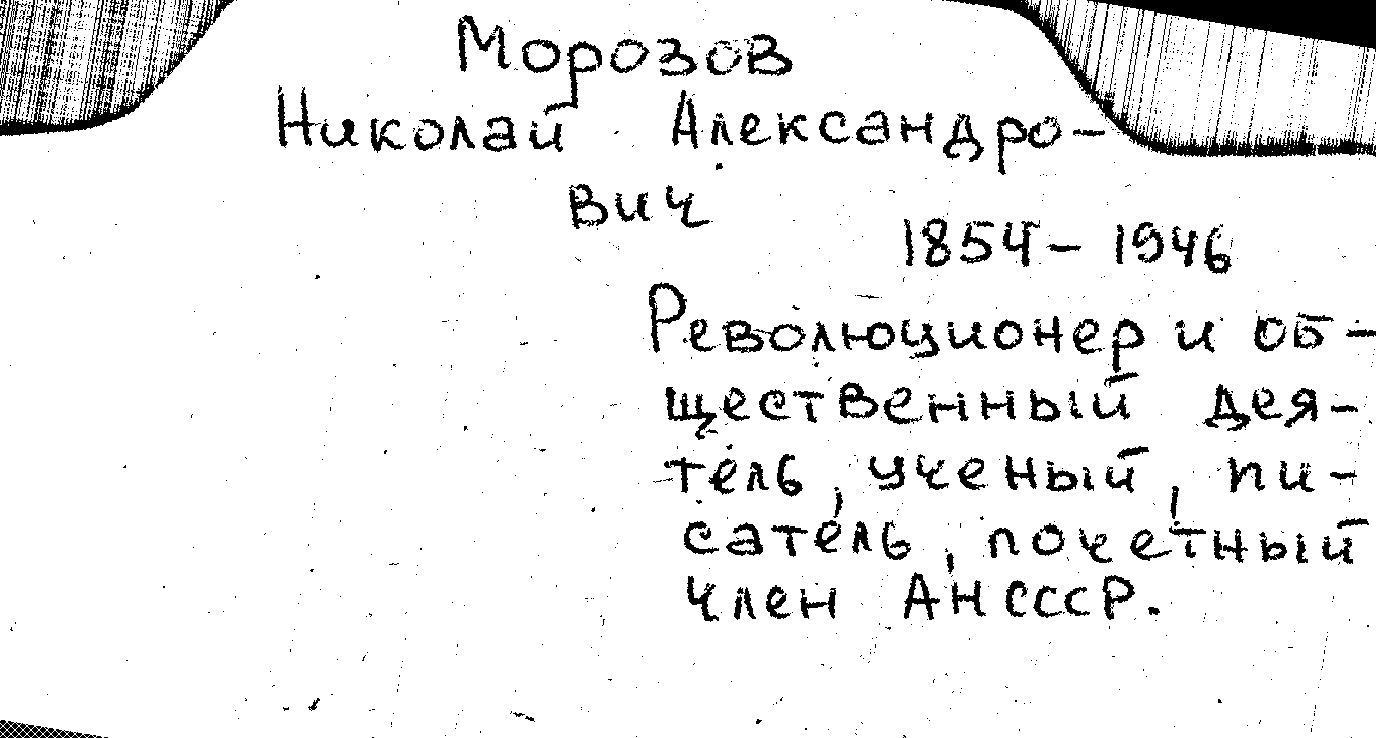 Морозов
Николай Александро-
вич
1854 - 1946
Революционер и об-
щественный дея-
тель, ученый, пи-
сатель, почетный
член АН СССР.